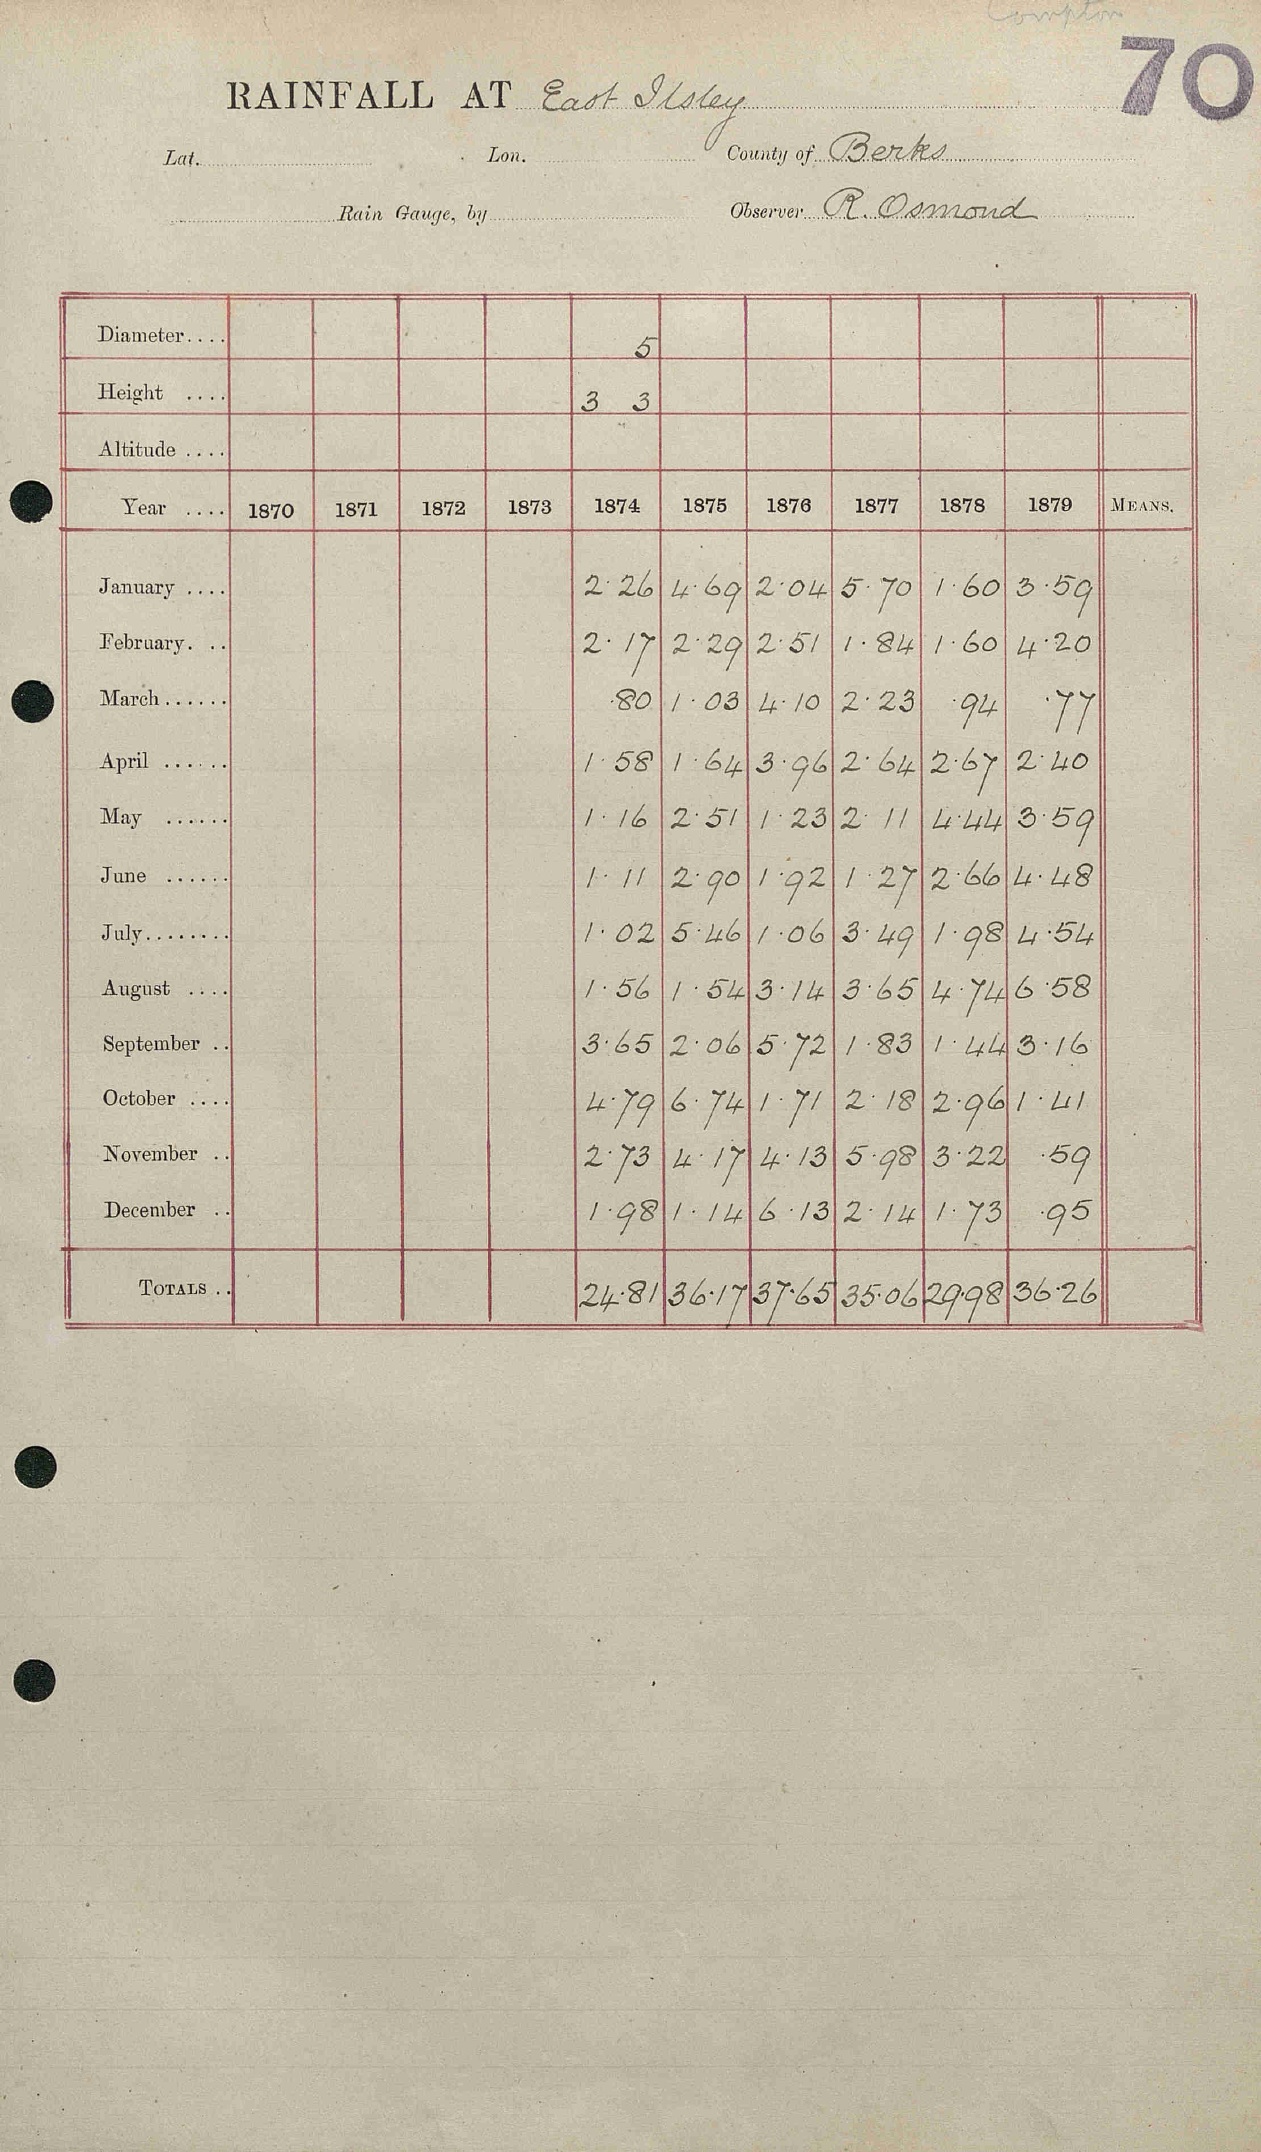 Compton
70
RAINFALL AT East Ilsley
Lat. Lon. County of Berks
Rain Gauge, by Observer R. Osmond
Diameter.... 5
Height .... 3 3
Altitude ....
Year .... 1870 1871 1872 1873 1874 1875 1876 1877 1878 1879 MEANS.
January .... 2.26 4.69 2.04 5.70 1.60 3.59
February. .. 2.17 2.29 2.51 1.84 1.60 4.20
March...... .80 1.03 4.10 2.23 .94 .77
April ...... 1.58 1.64 3.96 2.64 2.67 2.40
May ...... 1.16 2.51 1.23 2.11 4.44 3.59
June ...... 1.11 2.90 1.92 1.27 2.66 4.48
July........ 1.02 5.46 1.06 3.49 1.98 4.54
August .... 1.56 1.54 3.14 3.65 4.74 6.58
September .. 3.65 2.06 5.72 1.83 1.44 3.16
October .... 4.79 6.74 1.71 2.18 2.96 1.41
November .. 2.73 4.17 4.13 5.98 3.22 .59
December .. 1.98 1.14 6.13 2.14 1.73 .95
TOTALS .. 24.81 36.17 37.65 35.06 29.98 36.26